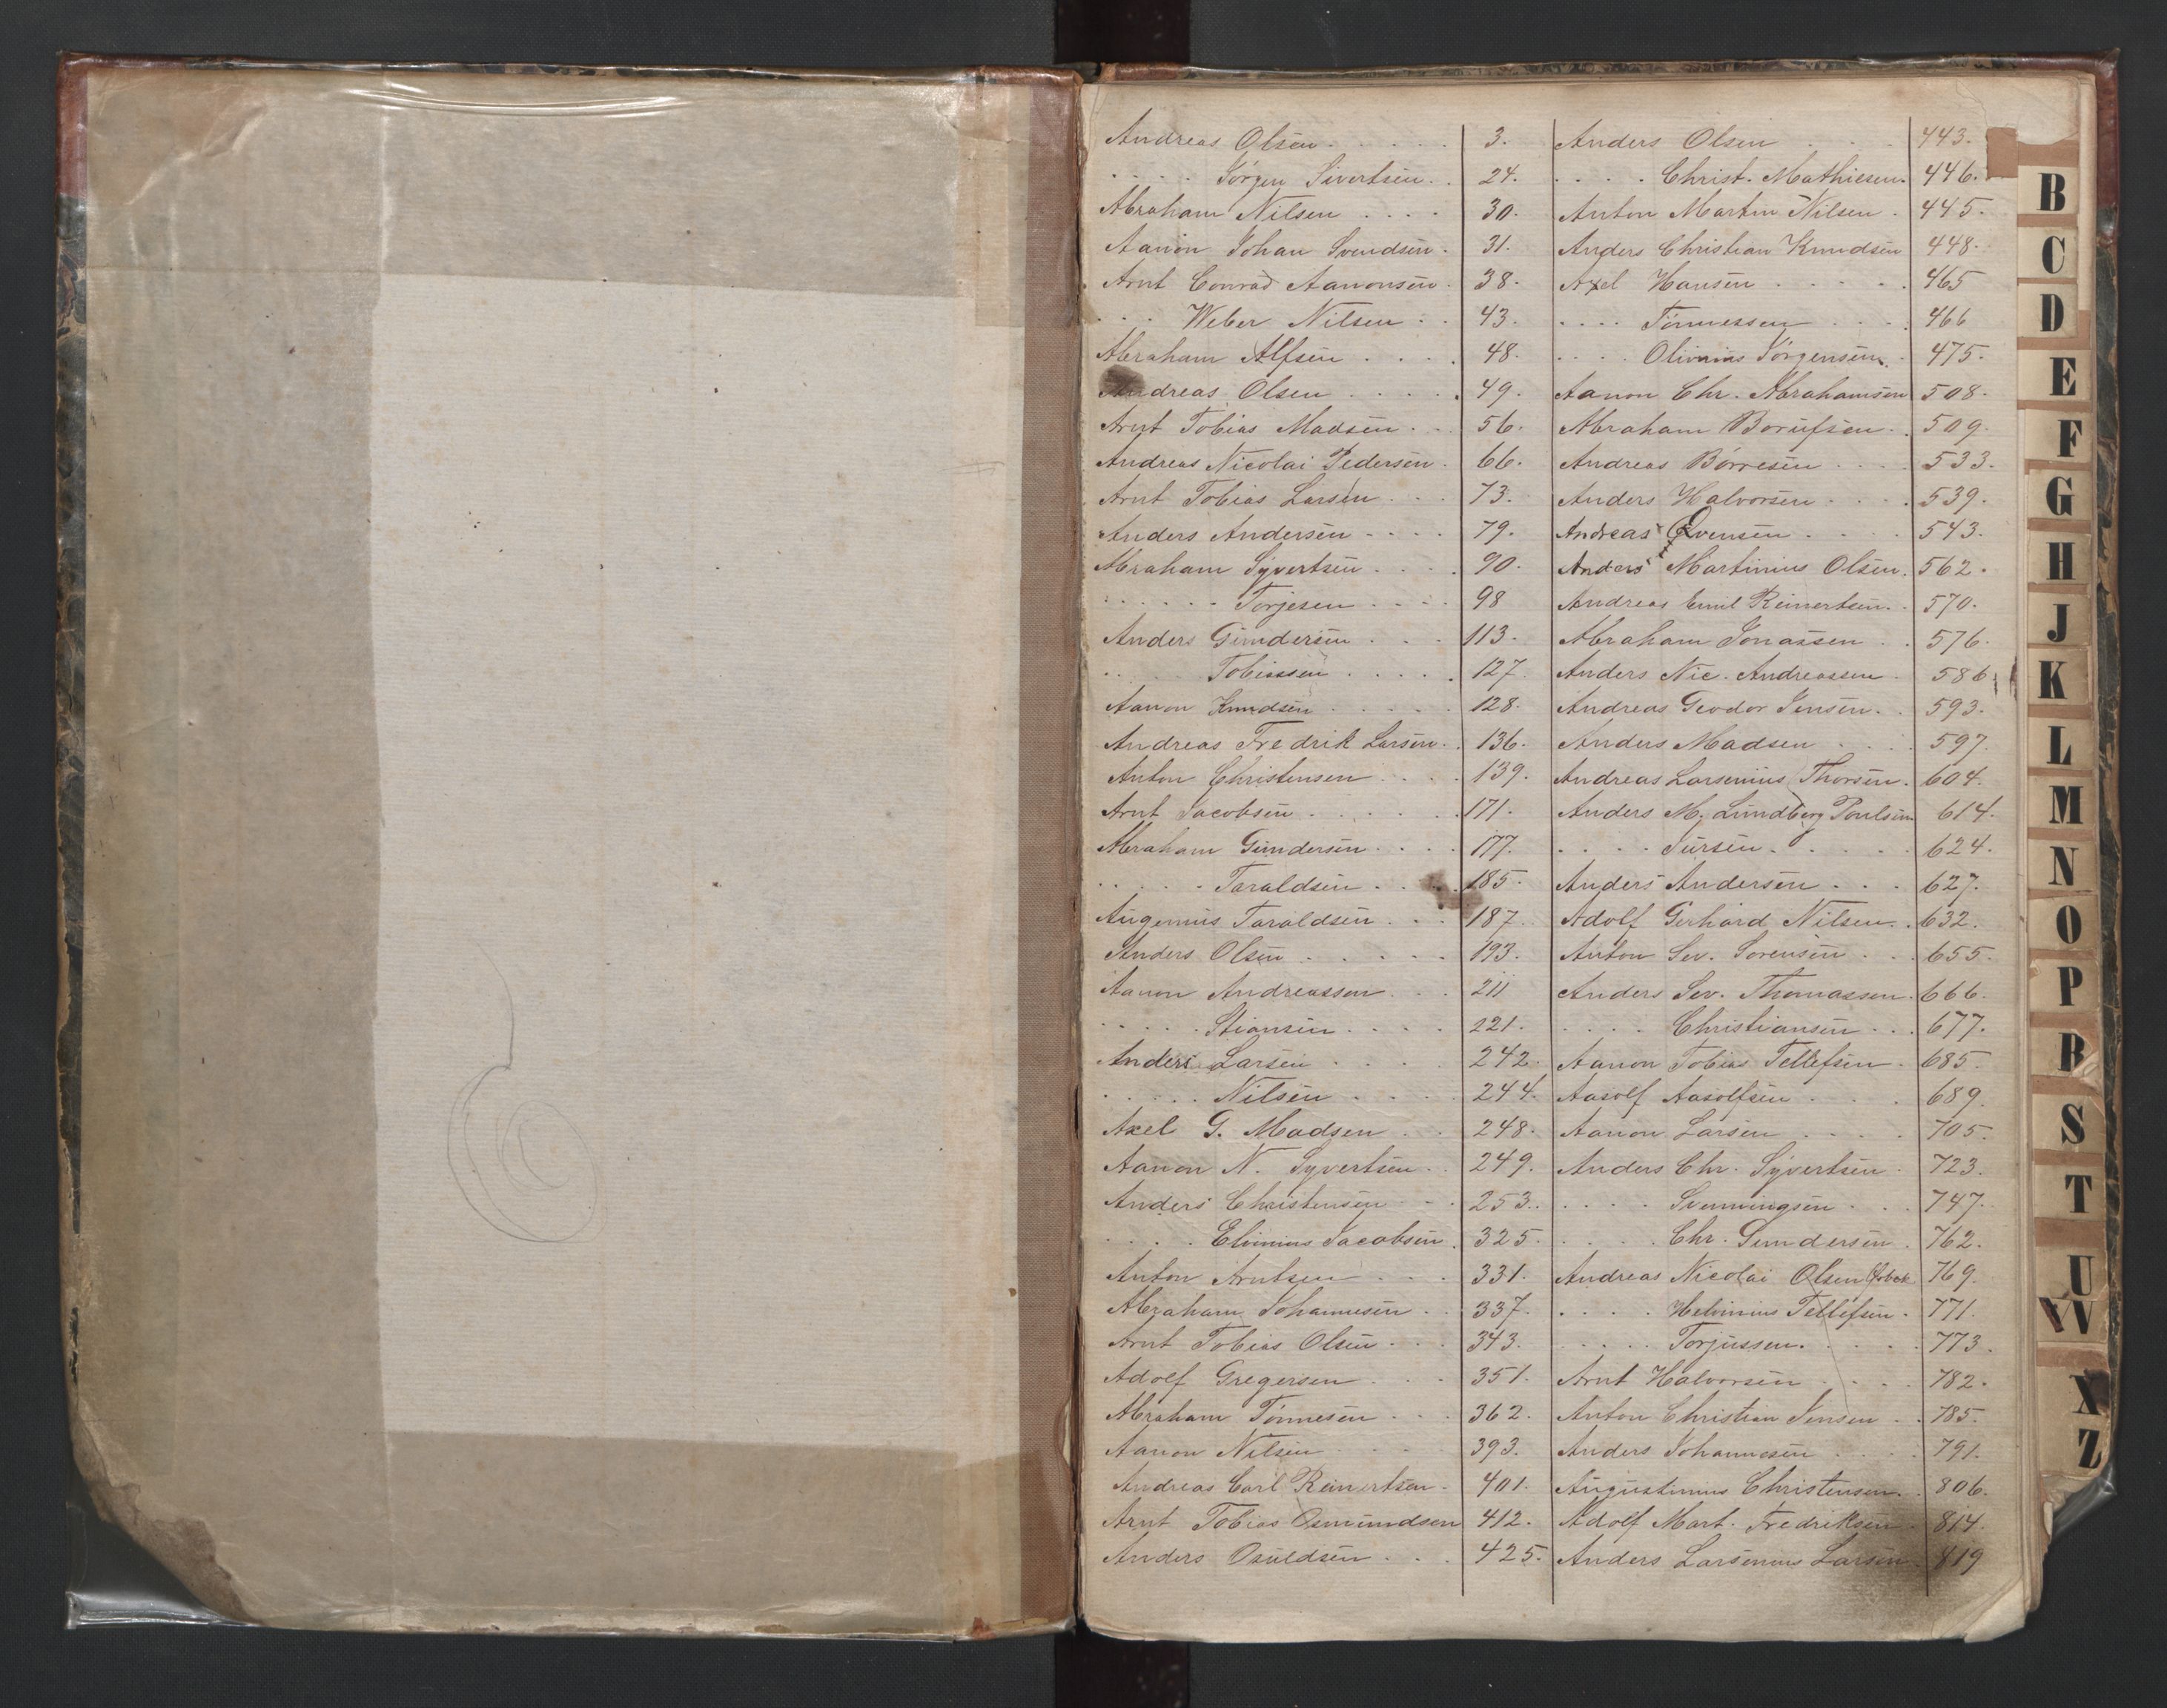 Andreas Olsen . . . . . 3.
. . . . Jørgen Sivertsen . . 24.
Abraham Nilsen . . . . 30.
Aanon Johan Svendsen . 31.
Arnt Conrad Aanonsen . 38.
. . . Weber Nilsen . . 43.
Abraham Alfsen . . . . 48.
Andreas Olsen . . . . . 49.
Arnt Tobias Madsen . . 56.
Andreas Nicolai Pedersen . 66.
Arnt Tobias Larsen . . . 73.
Anders Andersen . . . . 79.
Abraham Syvertsen . . . . 90.
. . . . . . Torjesen . . . . 98
Anders Gundersen . . . 113.
. . . . Tobiassen . . . . . 127.
Aanon Knudsen . . . . . 128.
Andreas Fredrik Larsen . . 136.
Anton Christensen . . . . 139.
Arnt Jacobsen . . . . . . 171.
Abraham Gundersen . . . . 177.
. . . . . Taraldsen . . . . 185.
Augenius Taraldsen . . . 187.
Anders Olsen . . . . . 193.
Aanon Andreassen . . . 211
. . . . . Stiansen . . . . 221.
Anders Larsen . . . . 242.
. . . . . Nilsen . . . . 244.
Axel G. Madsen . . . 248.
Aanon N. Syvertsen . . 249.
Anders Christensen . . 253.
. . . . Elvinius Jacobsen . 325.
Anton Arntsen . . . 331.
Abraham Johannesen . . 337.
Arnt Tobias Olsen . . . 343.
Adolf Gregersen . . . 351.
Abraham Tønnesen . . . 362.
Aanon Nilsen . . . . 393.
Andreas Carl Reinertsen . 401.
Arnt Tobias Osmundsen 412.
Anders Osuldsen . . . 425.
Anders Olsen . . . 443.
. . . . Christ. Mathiesen . 446.
Anton Martin Nilsen . 445.
Anders Christian Knudsen 448.
Axel Hansen . . . . . 465
. . . . Tønnessen . . . . 466
. . . . Olivinius Jørgensen . 475.
Aanon Chr. Abrahamsen 508.
Abraham Borufsen . . 509.
Andreas Børresen . . . . 533.
Anders Halvorsen . . . . 539.
Andreas Qvensen . . . . 543.
Anders Martinius Olsen . 562.
Andreas Emil Reinertsen . . 570.
Abraham Jonassen . . 576.
Anders Nic. Andreassen . 586
Andreas Teodor Jensen . . 593.
Anders Madsen . . . . 597.
Andreas Larsenius Thorsen . 604.
Anders M. Lundberg Poulsen 614.
. . . . Jursen . . . . . 624.
Anders Andersen . . . 627.
Adolf Gerhard Nilsen . . 632.
Anton Sev. Sorensen . . . 655.
Anders Sev. Thomassen . 666.
. . . . Christiansen . . . 677.
Aanon Tobias Tellefsen . 685.
Aasolf Aasolfsen . . . . 689.
Aanon Larsen . . . . 705.
Anders Chr. Syvertsen . 723.
. . . . Svenningsen . . . 747.
. . . . Chr. Gundersen . 762.
Andreas Nicolai Olsen 769.
. . . . Helvinius Tellefsen . 771.
. . . . . Torjussen . . . . 773.
Arnt Halvorsen . . . . 782.
Anton Christian Jensen . . 785.
Anders Johannesen . . . . 791.
Augustinius Christensen . . 806.
Adolf Mart. Fredriksen . 814.
Anders Larsenius Larsen . 819
B
C
D
E
F
G
H
J
K
L
M
N
O
P
R
S
T
U
V
W
X
Z